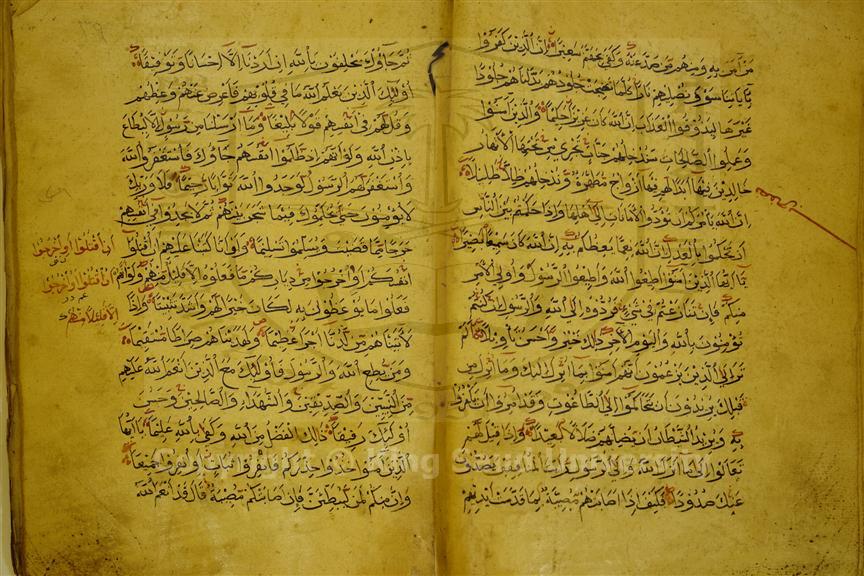 مَن آمن به ومنهم من صد عنه وكفى بجهنم سعيرا ان الذين كفروا
بآياتنا سوف نصليهم نارا كلما نضجت جلودهم بدلناهم جلودا
غيرها ليذوقوا العذاب ان الله كان عزيزا حكيما والذين آمنوا
وعملوا الصالحات سندخلهم جنات تجري من تحتها الانهار
خالدين فيها ابدا لهم فيها ازواج مطهرة وندخلهم ظلا ظليلا
ان الله يأمركم ان تؤدوا الامانات الى اهلها واذا حكمتم بين الناس
ان تحكموا بالعدل ان الله نعما يعظكم به ان الله كان سميعا بصيرا
يا ايها الذين آمنوا اطيعوا الله واطيعوا الرسول واولي الامر
منكم فان تنازعتم في شيء فردوه الى الله والرسول ان كنتم
تؤمنون بالله واليوم الآخر ذلك خير واحسن تأويلا الم
تر الى الذين يزعمون انهم آمنوا بما انزل اليك وما انزل من
قبلك يريدون ان يتحاكموا الى الطاغوت وقد امروا ان يكفروا
به ويريد الشيطان ان يضلهم ضلالا بعيدا واذا قيل لهم
تعالوا الى ما انزل الله والى الرسول رأيت المنافقين يصدون
عنك صدودا فكيف اذا اصابتهم مصيبة بما قدمت ايديهم
ثم جاؤك يحلفون بالله ان اردنا الا احسانا وتوفيقا
اولئك الذين يعلم الله ما في قلوبهم فاعرض عنهم وعظهم
وقل لهم في انفسهم قولا بليغا وما ارسلنا من رسول الا ليطاع
باذن الله ولو انهم اذ ظلموا انفسهم جاؤك فاستغفروا الله
واستغفر لهم الرسول لوجدوا الله توابا رحيما فلا وربك
لا يؤمنون حتى يحكموك فيما شجر بينهم ثم لا يجدوا في انفسهم
حرجا مما قضيت ويسلموا تسليما ولو انا كتبنا عليهم ان اقتلوا
انفسكم او اخرجوا من دياركم ما فعلوه الا قليل منهم ولو انهم
فعلوا ما يوعظون به لكان خيرا لهم واشد تثبيتا واذا
لآتيناهم من لدنا اجرا عظيما ولهديناهم صراطا مستقيما
ومن يطع الله والرسول فاولئك مع الذين انعم الله عليهم
من النبيين والصديقين والشهداء والصالحين وحسن
اولئك رفيقا ذلك الفضل من الله وكفى بالله عليما يا ايها
الذين آمنوا خذوا حذركم فانفروا ثبات او انفروا جميعا
وان منكم لمن ليبطئن فان اصابتكم مصيبة قال قد انعم الله
ان اقتلوا او اخرجوا
ان اقتلوا او اخرجوا
الا قليلا منهم
Copyright © King Saud University